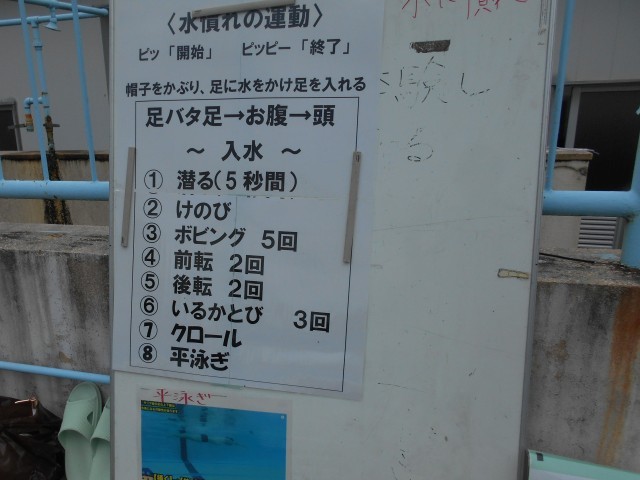 〈水慣れの運動〉
ピッ「開始」 ピッピー「終了」
帽子をかぶり、足に水をかけ足を入れる
足バタ足→お腹→頭
～ 入水 ～
① 潜る(5秒間)
② けのび
③ ボビング 5回
④ 前転 2回
⑤ 後転 2回
⑥ いるかとび 3回
⑦ クロール
⑧ 平泳ぎ
平泳ぎ